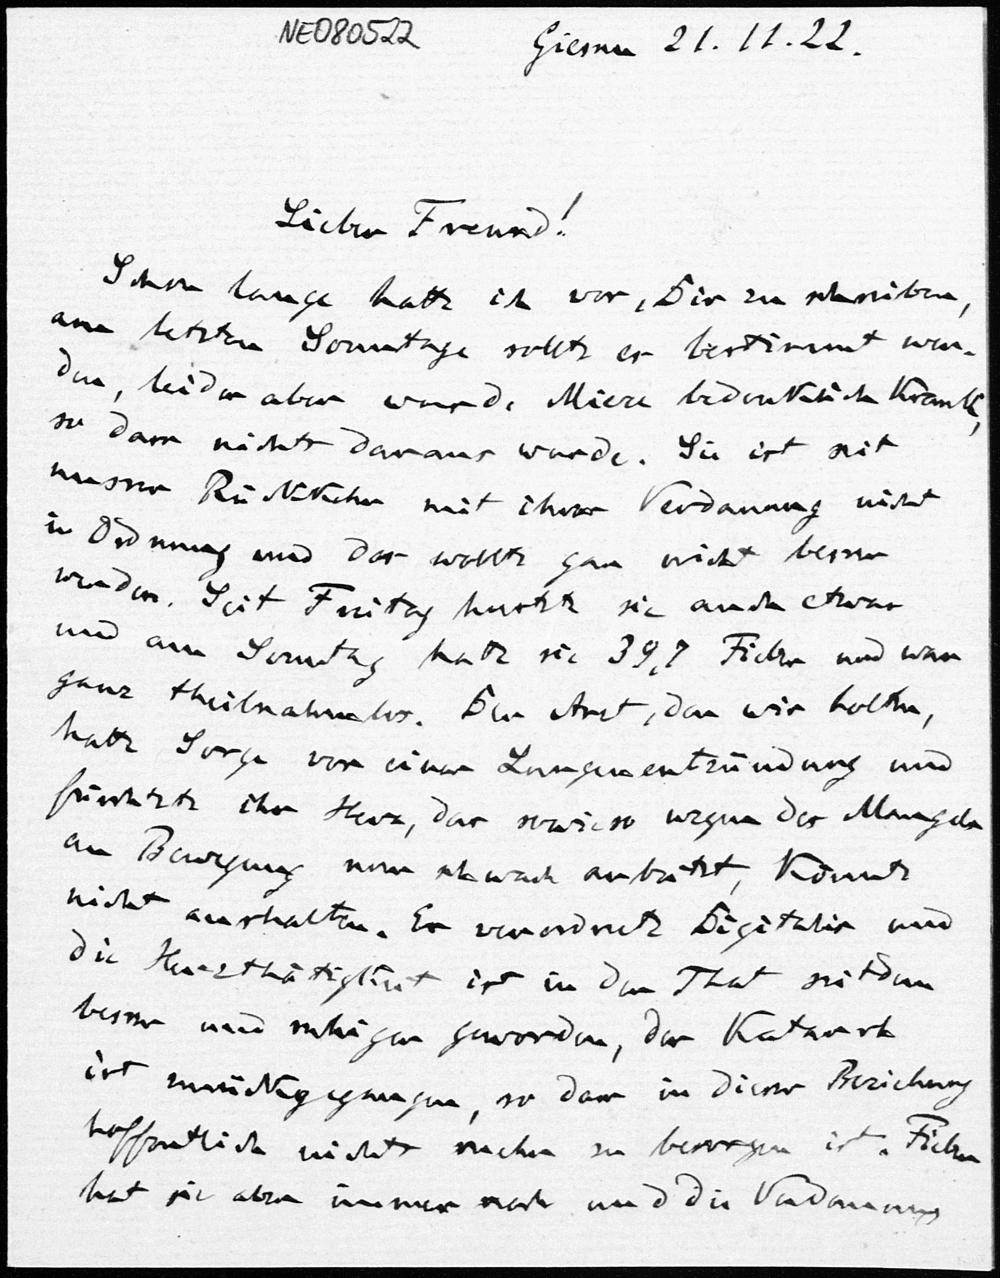 NE080522
Giessen 21. 11. 22.
Lieber Freund!
Schon lange hatte ich vor, Dir zu schreiben,
am letzten Sonntage sollte es bestimmt wer-
den, leider aber wurde Mieze bedenklich krank,
so dass nichts daraus wurde. Sie ist seit
unserer Rückkehr mit ihrer Verdauung nicht
in Ordnung und das wollte gar nicht besser
werden. Seit Freitag hustete sie auch etwas
und am Sonntag hatte sie 39,7 Fieber und war
ganz theilnahmlos. Der Arzt, den wir holten,
hatte Sorge vor einer Lungenentzündung und
fürchtete ihr Herz, das sowieso wegen des Mangels
an Bewegung nur schwach arbeitet, könnte
nicht aushalten. Er verordnete Digitalis und
die Herzthätigkeit ist in der That seitdem
besser und ruhiger geworden, der Katarrh
ist zurückgegangen, so dass in dieser Beziehung
hoffentlich nichts mehr zu besorgen ist. Fieber
hat sie aber immer noch und die Verdauung